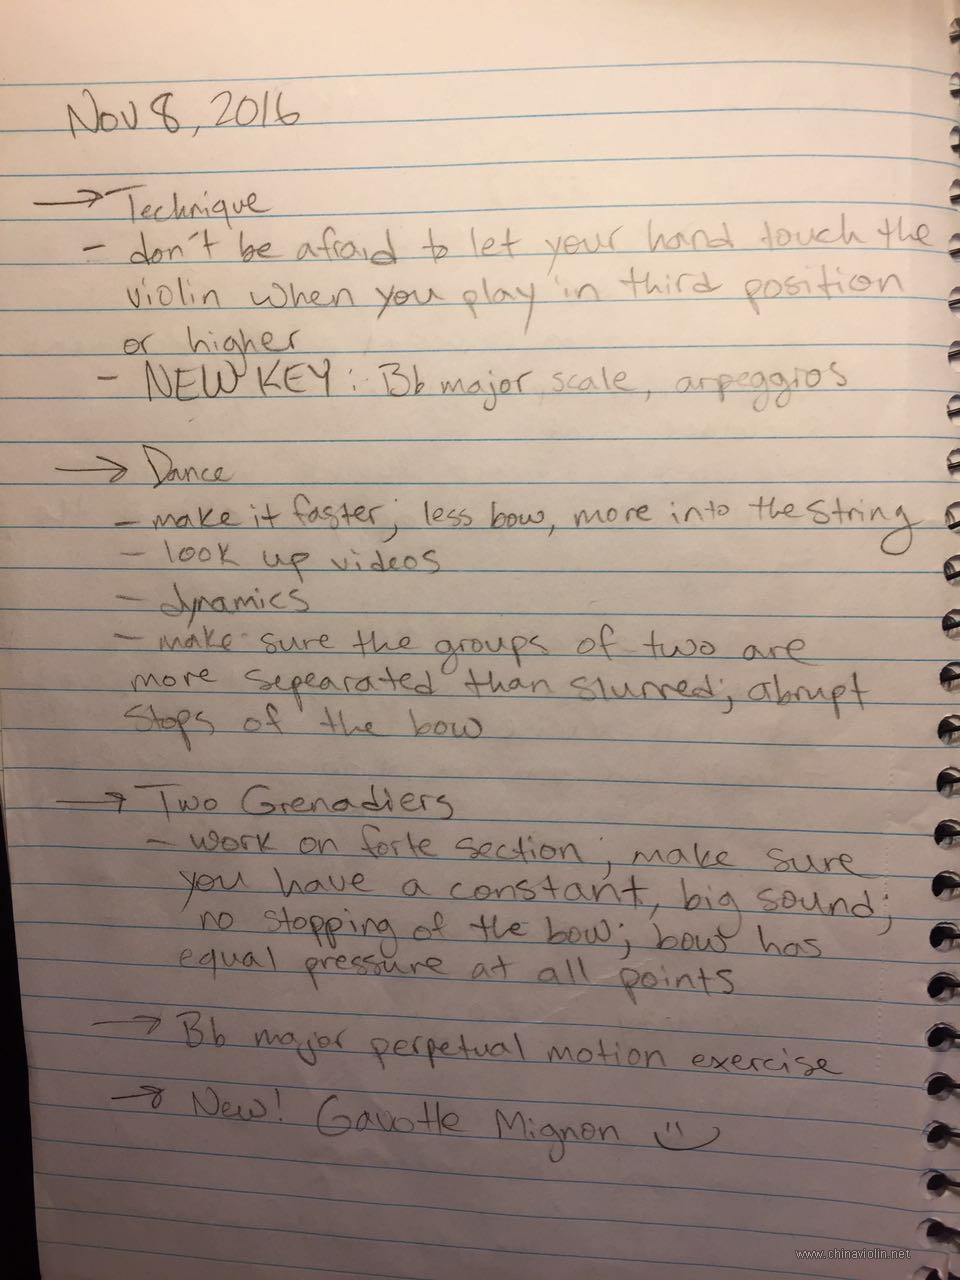 Nov 8, 2016
→ Technique
- don't be afraid to let your hand touch the
violin when you play in third position
or higher
- NEW KEY: Bb major scale, arpeggios
→ Dance
- make it faster; less bow, more into the string
- look up videos
- dynamics
- make sure the groups of two are
more sepearated than slurred; abrupt
stops of the bow
→ Two Grenadiers
- work on forte section; make sure
you have a constant, big sound;
no stopping of the bow; bow has
equal pressure at all points
→ Bb major perpetual motion exercise
→ New! Gavotte Mignon :)
www.chinaviolin.net